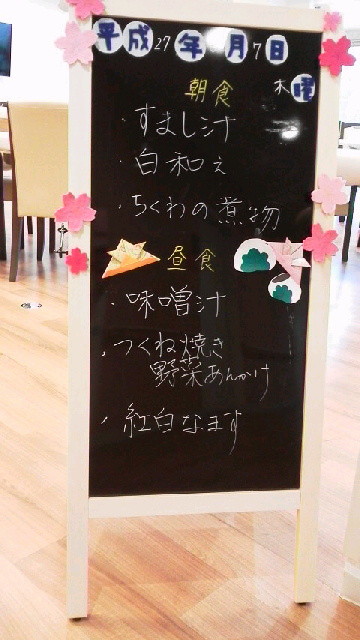 平成27年 月7日
木曜
朝食
・すまし汁
・白和え
・ちくわの煮物
昼食
・味噌汁
・つくね焼き
野菜あんかけ
・紅白なます